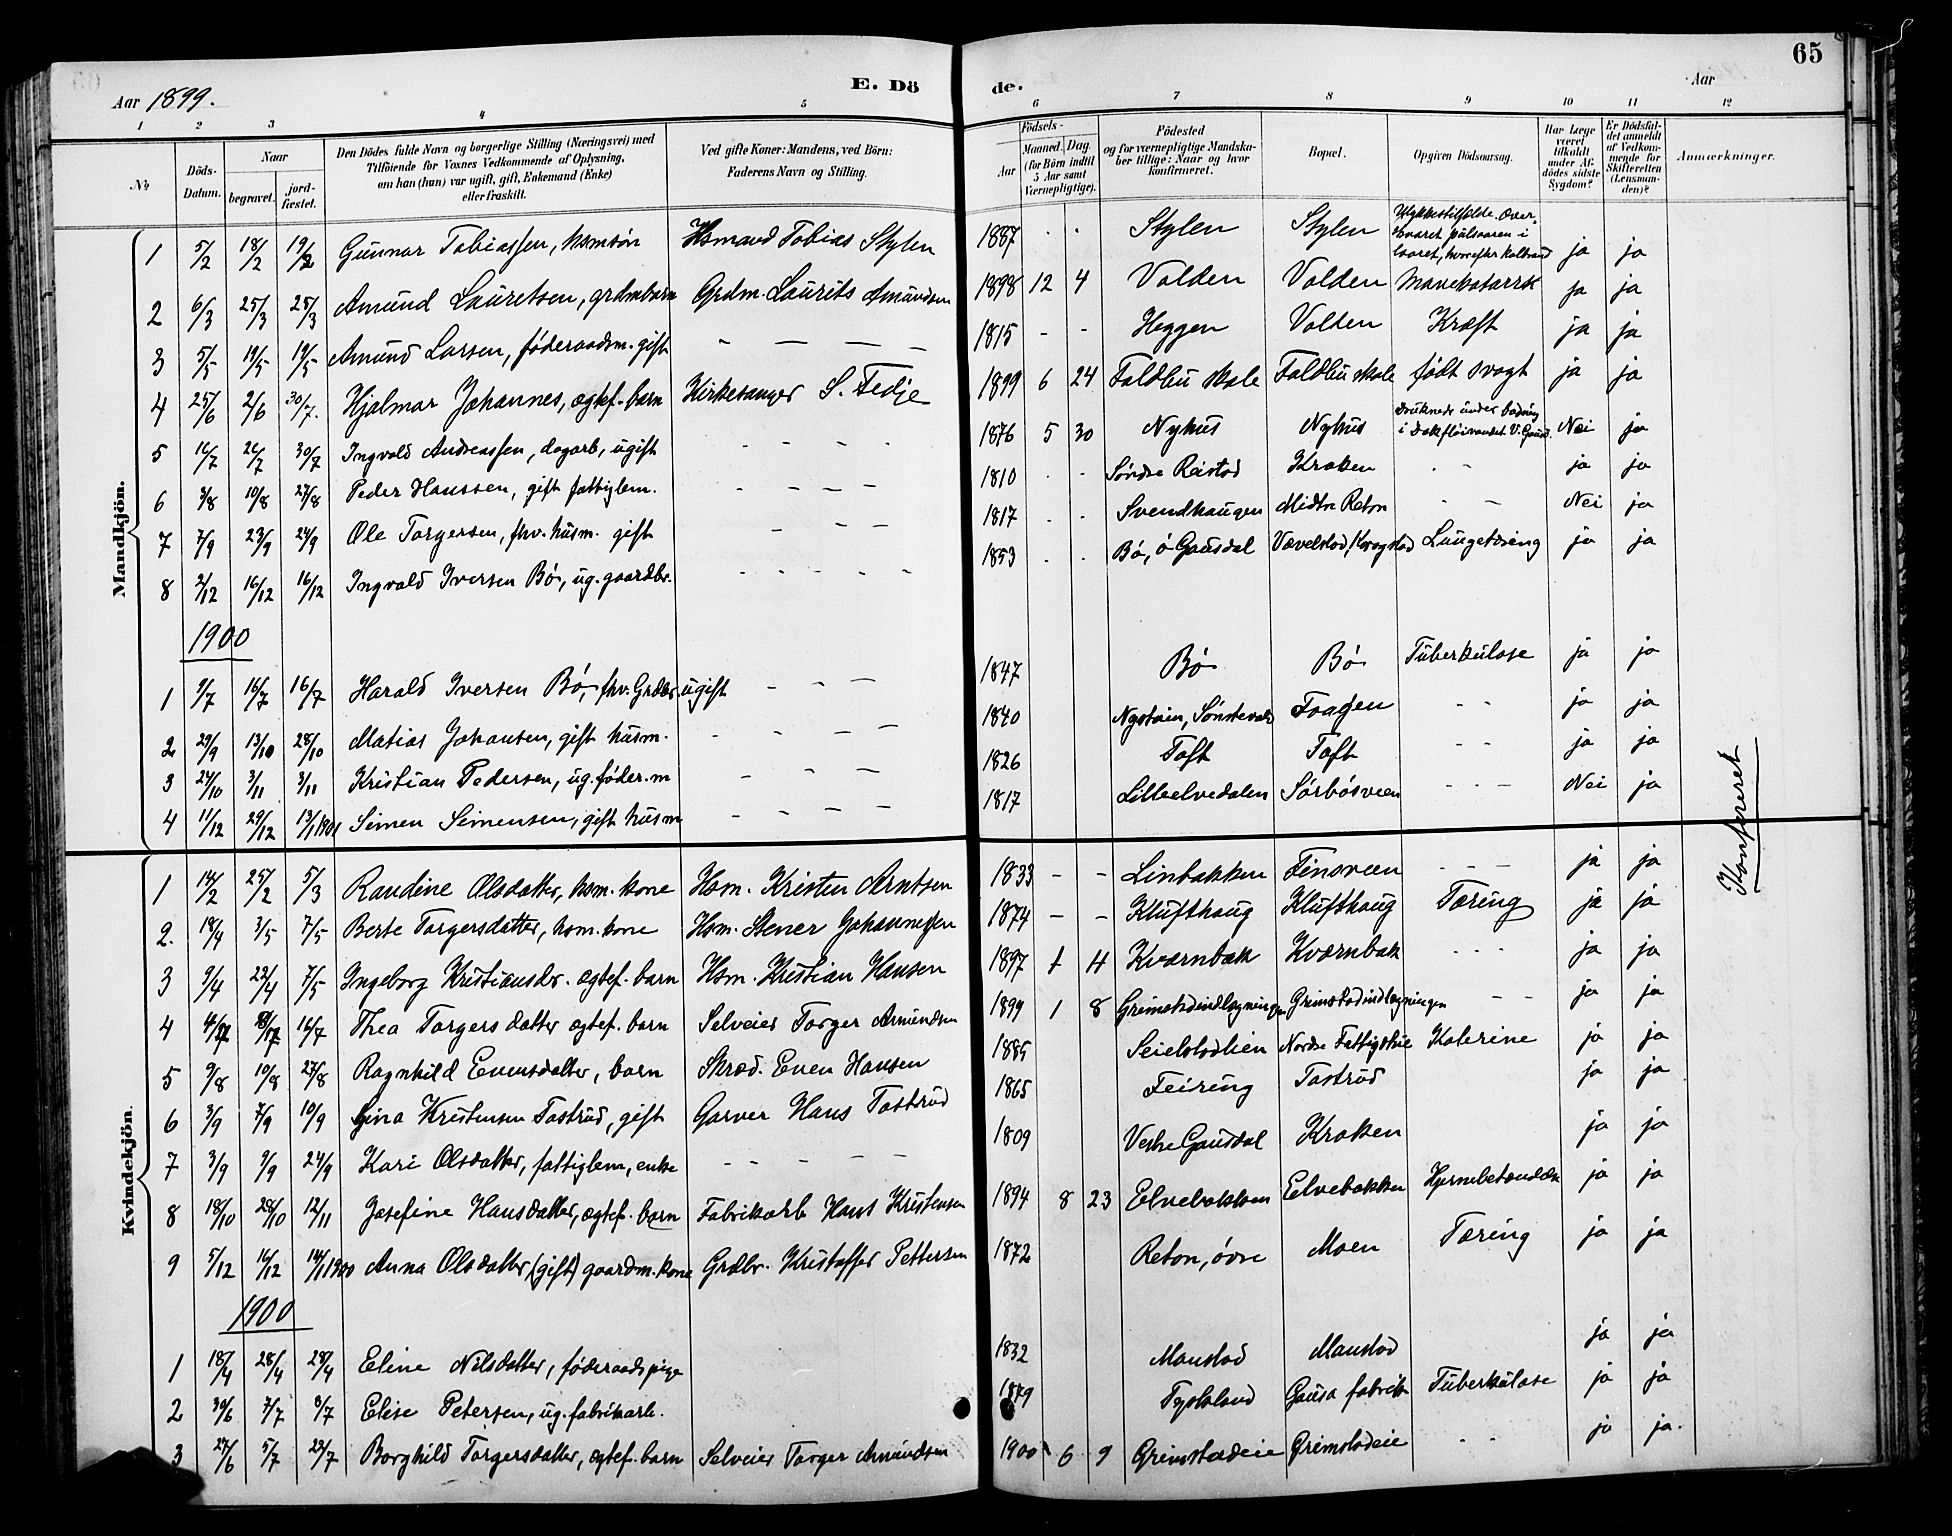 65
Aar 1899.
E. Dö
de.
Aar
1 2 3 4 5 6 7 8 9 10 11 12
No
Döds-Datum.
Naar
begravet.
jord-fæstet.
Den Dödes fulde Navn og borgerlige Stilling (Næringsvei) med
Tilföiende for Voxnes Vedkommende af Oplysning,
om han (hun) var ugift, gift, Enkemand (Enke)
eller fraskilt.
Ved gifte Koner: Mandens, ved Börn:
Faderens Navn og Stilling.
Födsels-
Aar
Maaned. Dag.
(for Börn indtil
5 Aar samt
Værnepligtige).
Födested
og for værnepligtige Mandska-
ber tillige: Naar og hvor
konfirmeret.
Bopæl.
Opgiven Dödsaarsag.
Har Læge
været
tilkaldt
under Af-
dödes sidste
Sygdom?
Er Dödsfal-
det anmeldt
af Vedkom-
mende for
Skifteretten
(Lensman-
den)?
Anmærkninger.
Mandkjön.
1 5/2 18/2 19/2 Gunnar Tobiassen, hsmsön Hsmand Tobias Stylen 1887 . . Stylen Stylen Ulykkestilfælde. Over-
skaaret pulsaaren i
laaret, hvorefter Kolbrand ja ja
2 6/3 25/3 25/3 Amund Lauretsen, grdmbarn Grdm. Laurits Amundsen 1898 12 4 Volden Volden Mavekatarrh ja ja
3 5/5 19/5 19/5 Amund Larsen, føderaadsm. gift - - - - 1815 - - Heggen Volden Kræft ja ja
4 25/6 2/6 30/7. Hjalmar Johannes, ægtef. barn Kirkesanger S. Fedje 1899 6 24 Foldbu skole Foldbu skole født svagt ja ja
5 16/7 26/7 30/7 Ingvald Andreassen, dagarb, ugift - - - - 1876 5 30 Nyhus Nyhus druknede under badning
i V. Gausd. Nei ja
6 3/8 10/8 27/8 Peder Hanssen, gift fattiglem. - - - - 1810 . . Søndre Rustad Kraken . - ja ja
7 7/9 23/9 24/9 Ole Torgersen, fhv. husm. gift - - - 1817 . . Svendhaugen Midtre Reton - - Nei ja
8 2/12 16/12 16/12 Ingvald Iversen Bø, ug. gaardbr. - - - - - 1853 . . Bø, ø Gausdal Lungetæring ja ja
1900
1 9/7 16/7 16/7 Harald Iversen Bø, fhv. Grdbr. ugift - - - 1847 Bø Bø Tuberkulose ja ja
2 29/9 13/10 28/10 Matias Johansen, gift husm. - - - - 1840 - - ja ja
3 24/10 3/11 3/11 Kristian Pedersen, ug. føder.m - - - 1826 Toft Toft - - ja ja
4 11/12 29/12 13/1 1901 Simen Simensen, gift husm - - - - 1817 Lilleelvedalen Sørbøsveen - - - Nei ja
Konfereret
Kvindekjön.
1 14/2 25/2 5/3 Randine Olsdatter, hsm. kone Hsm. Kristen Arntsen 1833 - - Linbakken Finsveen - - - ja ja
2. 18/4 3/5 7/5 Berte Torgersdatter, hsm. kone Hsm. Stener Johannesen 1874 - - Klufthaug Klufthaug Tæring ja ja
3 9/4 22/4 7/5 Ingeborg Kristiansdr. ægtef. barn Hsm. Kristian Hansen 1897 1 4 Kværnbæk Kværnbak - - - ja ja
4 16/7 Thea Torgersdatter ægtef. barn Selveier Torger Amundsen 1899 1 8 Grimstadindlægningen Grimstadindlægningen - - ja ja
5 9/8 10/8 27/8 Ragnhild Evensdatter, barn Skræd. Even Hansen 1885 Seielstadlien Nordre Kolerine ja ja
6 3/9 7/9 10/9 Gina Kristensen Tostrud, gift Garver Hans Tostrud 1865 Feiring Tostrud ja ja
7 3/9 9/9 24/9 Kari Olsdatter, fattiglem, enke - - - - - 1809 Vestre Gausdal Kraken ja ja
8 18/10 28/10 12/11 Josefine Hansdatter, ægtef. barn Fabrikarb Hans Kristensen 1894 8 23 Elvebakken Elvebakken Hjernebetændelse ja ja
9 5/12 16/12 14/1 1900 Anna Olsdatter (gift) gaardm. kone Grdbr. Kristoffer Pettersen 1872 Reton, øvre Moen Tæring ja ja
1900
1 18/4 28/4 28/4 Eline Nilsdatter, føderaadspige 1832 Maustad Maustad ja ja
2 30/6 7/7 8/7 Elise Petersen, ug. fabrikarb. 1879 Tyskland Gausa fabrik Tuberkulose ja ja
3 27/6 5/7 22/7 Borghild Torgersdatter, ægtef. barn Selveier Torger Amundsen 1900 6 9 Grimstadeie Grimstadeie - - ja ja.